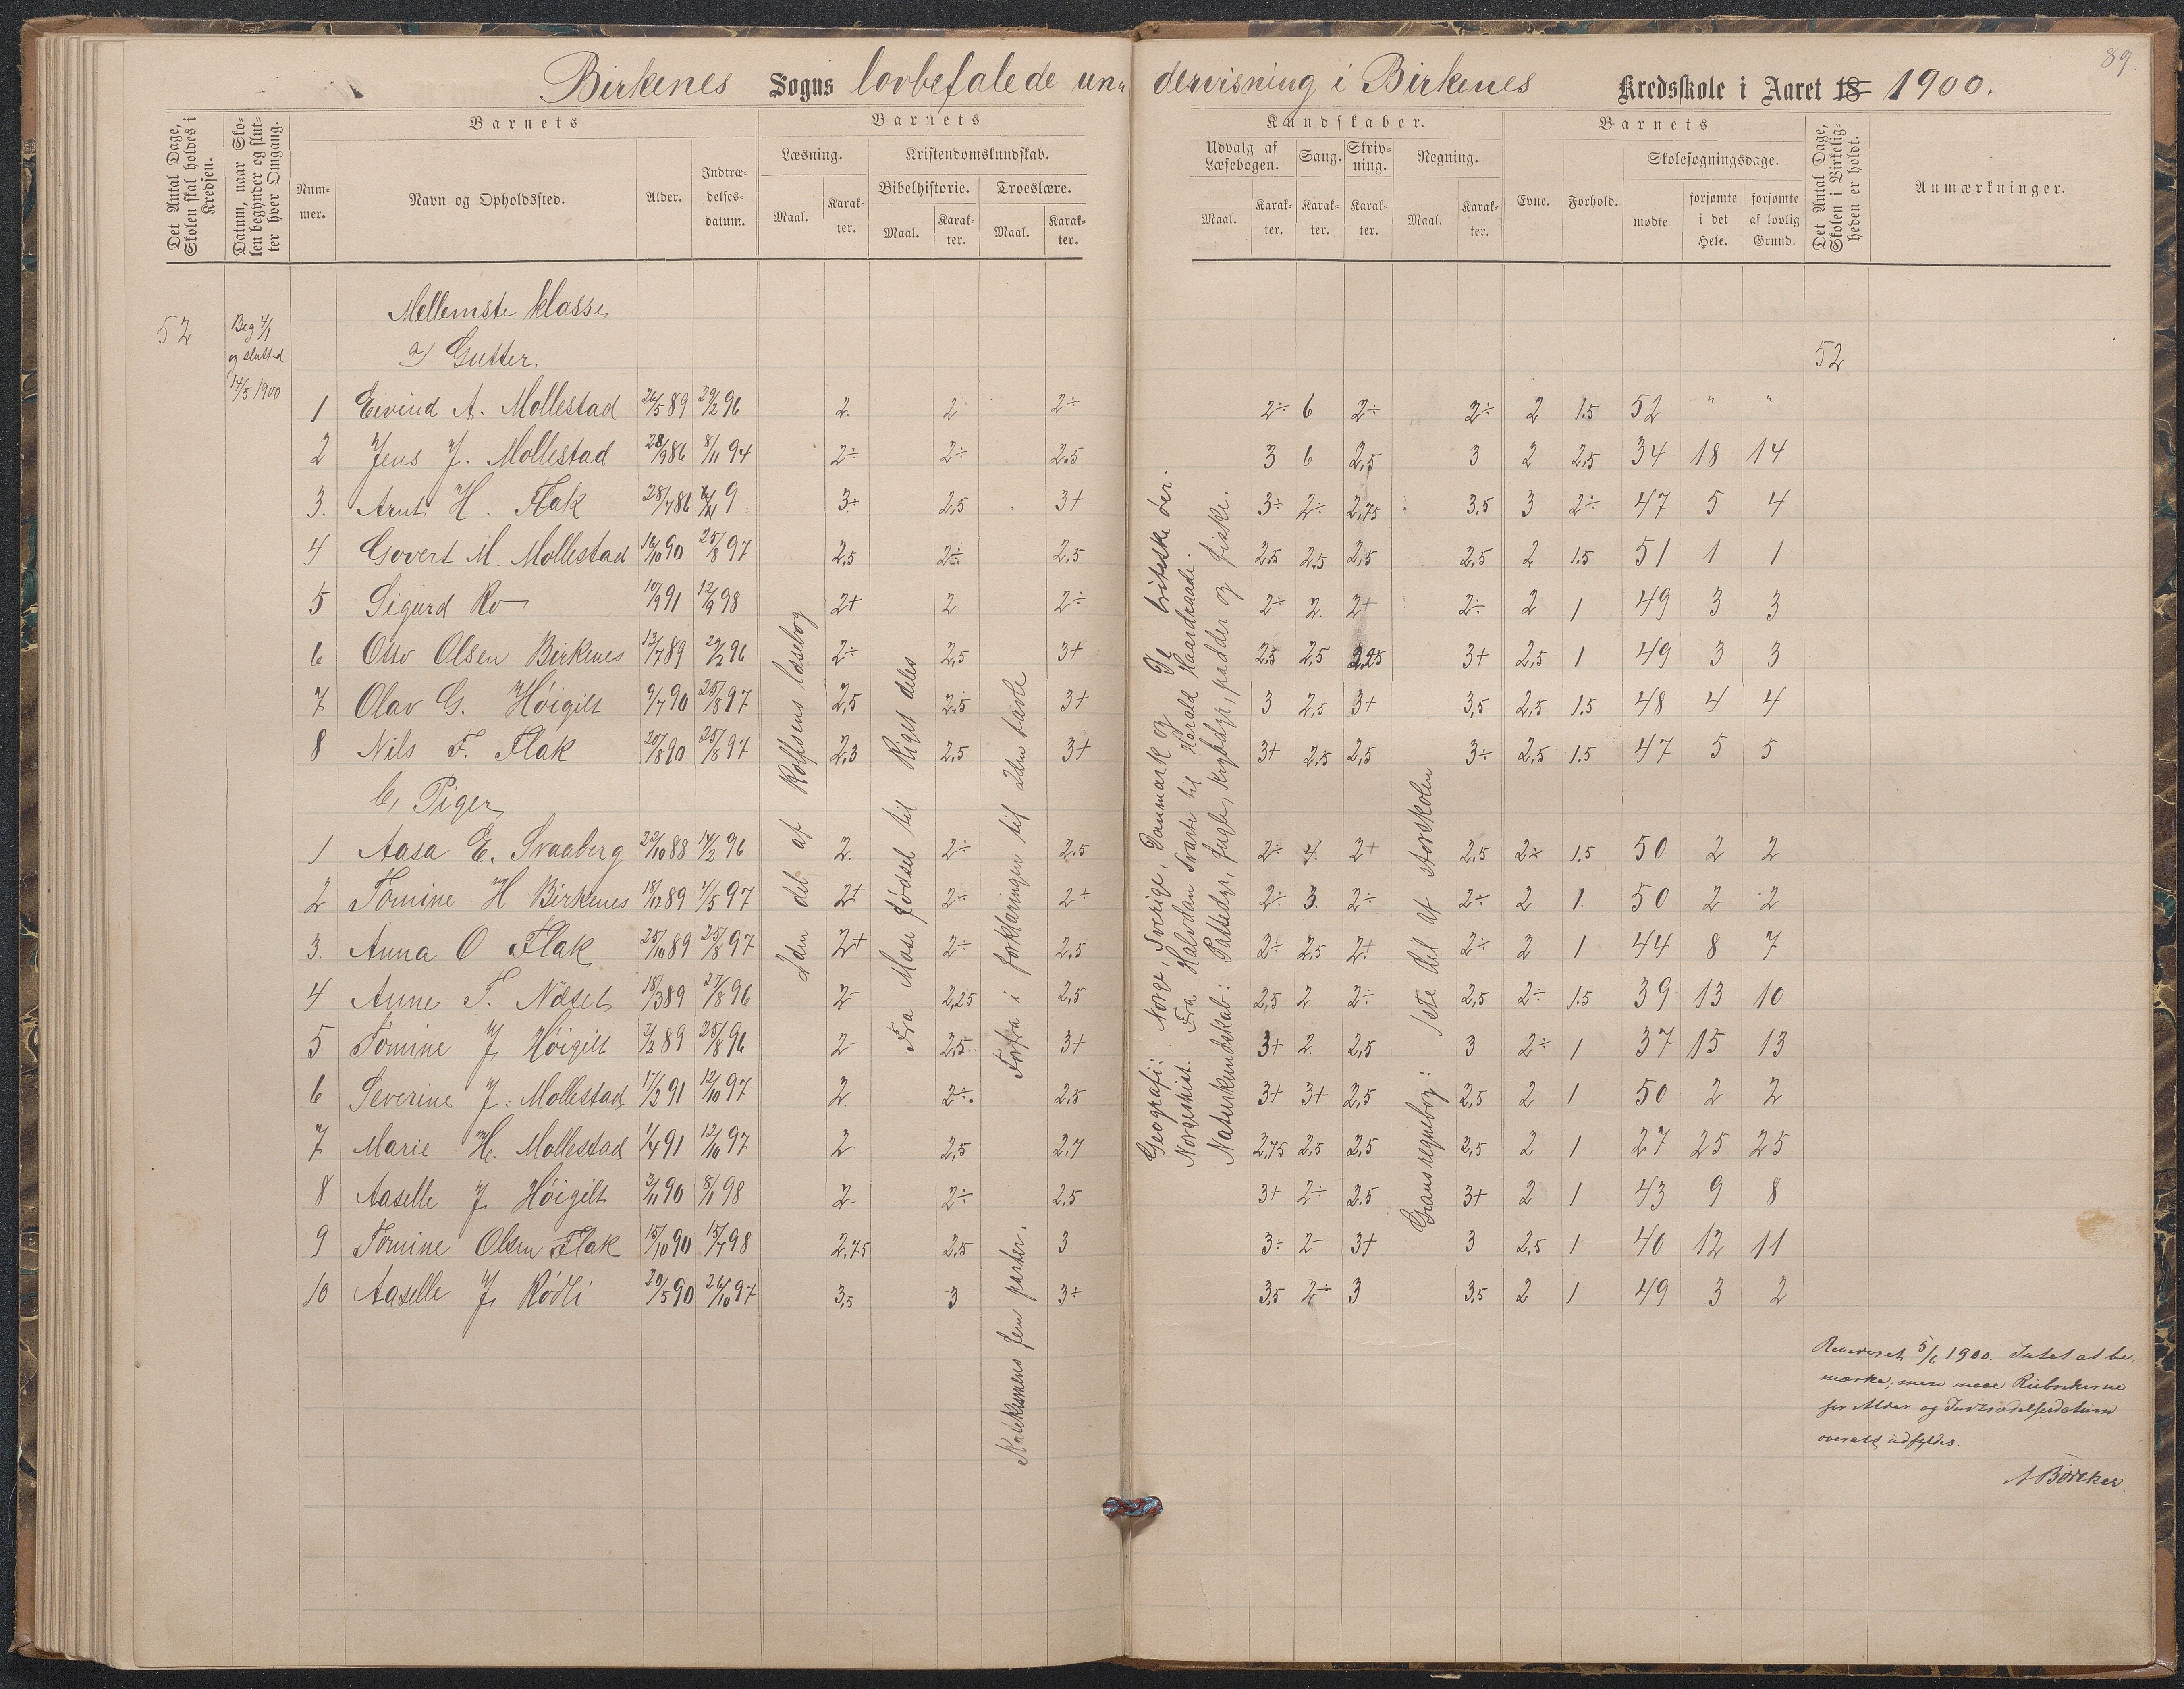 89.
Birkenes Sogns lovbefalede un„ dervisning i Birkenes Kredsskole i Aaret 18 1900.
Det Antal Dage, Skolen skal holdes i Kredsen.
Datum, naar Skolen begynder og slutter hver Omgang.
Barnets
Nummer.
Navn og Opholdssted.
Alder.
Indtrædelsesdatum.
Barnets
Læsning.
Maal.
Karakter.
Kristendomskundskab.
Bibelhistorie.
Maal.
Karakter.
Troeslære.
Maal.
Karakter.
Kundskaber.
Udvalg af Læsebogen.
Maal.
Karakter.
Sang.
Karakter.
Skrivning.
Karakter.
Regning.
Maal.
Karakter.
Barnets
Evne.
Forhold.
Skolesøgningsdage.
mødte
forsømte i det Hele.
forsømte af lovlig Grund.
Det Antal Dage, Skolen i Virkeligheden er holdt.
Anmærkninger.
52
Beg 4/1
og slutted
14/5 1900
Mellemste klasse
a) Gutter.
52
1 Eivind A. Mollestad 26/5 89 29/2 96 2. 2 2÷ 2÷ 6 2÷ 2÷ 2 1.5 52 " "
2 Jens J. Mollestad 28/9 86 8/11 94 2÷ 2÷ 2.5 3 6 2,5 3 2 2,5 34 18 14
3. Arnt H. Flak 28/7 86 9 3÷ 2,5 3+ 3÷ 2÷ 2,75 3,5 3 2÷ 47 5 4
4 Govert M. Mollestad 16/10 90 25/8 97 2,5 2÷ 2,5 2,5 2,5 2,5 2,5 2 1.5 51 1 1
5 Sigurd Ro 10/9 91 12/9 98 2+ 2 2÷ 2÷ 2. 2+ 2÷ 2 1 49 3 3
6 Otto Olsen Birkenes 13/7 89 29/2 96 2÷ 2,5 3+ 2,5 2,5 2,25 3+ 2,5 1 49 3 3
7 Olav G. Høigilt 9/7 90 25/8 97 2,5 2,5 3+ 3 2,5 3+ 3,5 2,5 1.5 48 4 4
8 Nils F. Flak 20/8 90 25/8 97 2,3 2,5 3+ 3+ 2,5 2,5 3÷ 2,5 1.5 47 5 5
b, Piger
1 Aasa E. Svaaberg 22/10 88 14/2 96 2. 2÷ 2,5 2÷ 4. 2+ 2,5 2÷ 1.5 50 2 2
2 Tomine H Birkenes 18/12 89 4/5 97 2+ 2÷ 2÷ 2÷ 3. 2÷ 2÷ 2 1. 50 2 2
3. Anna O Flak 25/10 89 25/8 97 2+ 2÷ 2,5 2÷ 2.5 2+ 2÷ 2 1 44 8 7
4 Anne T. Næset 18/3 89 27/8 96 2- 2,25 2,5 2,5 2. 2÷ 2,5 2÷ 1.5 39 13 10
5 Tomine J. Høigilt 2/2 89 25/8 96 2- 2,5 3+ 3+ 2. 2,5 3 2÷ 1 37 15 13
6 Severine J. Mollestad 17/2 91 12/10 97 2. 2÷. 2,5 3+ 3+ 2,5 2,5 2 1 50 2 2
7 Marie H. Mollestad 1/4 91 12/10 97 2 2,5 2,7 2,75 2,5 2,5 2,5 2 1 27 25 25
8 Aaselle J. Høigilt 2/11 90 8/1 98 2- 2÷ 2,5 3+ 2÷ 2.5 3+ 2 1 43 9 8
9 Tomine Olsen Flak 15/10 90 15/7 98 2,75 2,5 3 3÷ 2- 3+ 3 2,5 1 40 12 11
10 Aaselle J. Rødli 30/5 90 26/10 97 3,5 3 3÷ 3,5 2÷ 3 3,5 2 1 49 3 2
2den del af Rolfsens læsebog
Fra Mose fødsel til Riget deles
Forfra i forklaringen til 2den tavle
Katekismens fem parter.
Geografi: Norge, Sverige, Danmark og De britiske øer.
Norgeshist. Fra Halvdan Svarte til Harald Haardraade.
Naturkundskab: Pattedyr, fugle, krybdyr, padder og fiske.
Grans regnebog: 1ste del af storskolen
Revideret 5/6 1900. Intet at be-
mærke; men maae Rubrikerne
for Alder og Indtrædelsesdatum
overalt udfyldes.